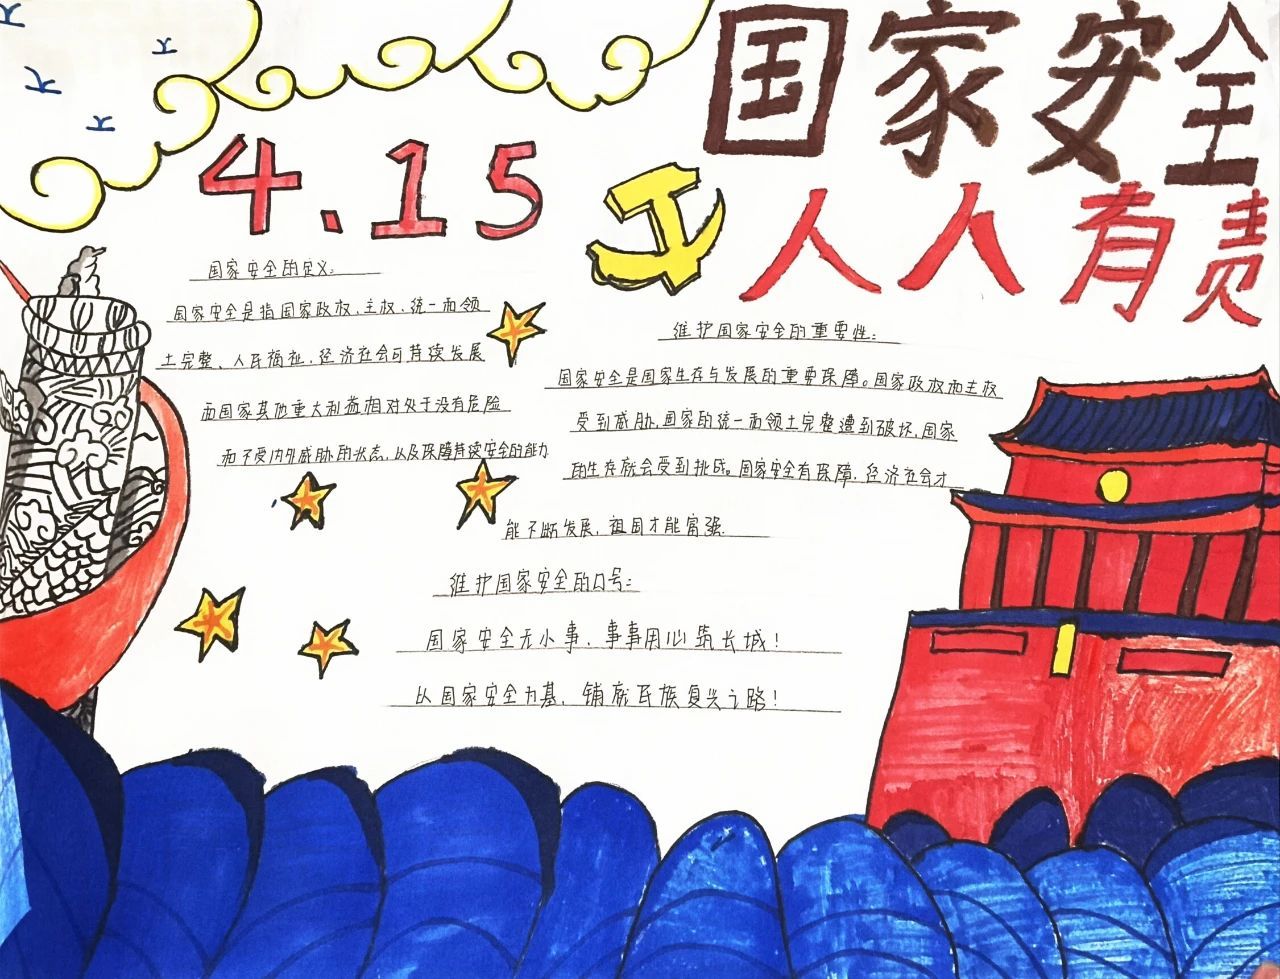 国家安全
人人有责
4.15
国家安全的定义:
国家安全是指国家政权、主权、统一和领
土完整、人民福祉、经济社会可持续发展
和国家其他重大利益相对处于没有危险
和不受内外威胁的状态,以及保障持续安全的能力
维护国家安全的重要性:
国家安全是国家生存与发展的重要保障。国家政权和主权
受到威胁,国家的统一和领土完整遭到破坏,国家
的生存就会受到挑战。国家安全有保障,经济社会才
能不断发展,祖国才能富强.
维护国家安全的口号:
国家安全无小事、事事用心筑长城!
以国家安全为基、铺就民族复兴之路!